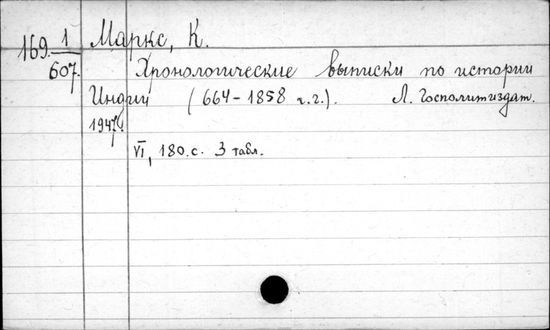 Маркс, К.
169. 1
607.
Хронологические выписки по истории
Индии (664-1858 г.г.). Л. Госполитиздат.
1947г.
VI, 180.с. 3 табл.